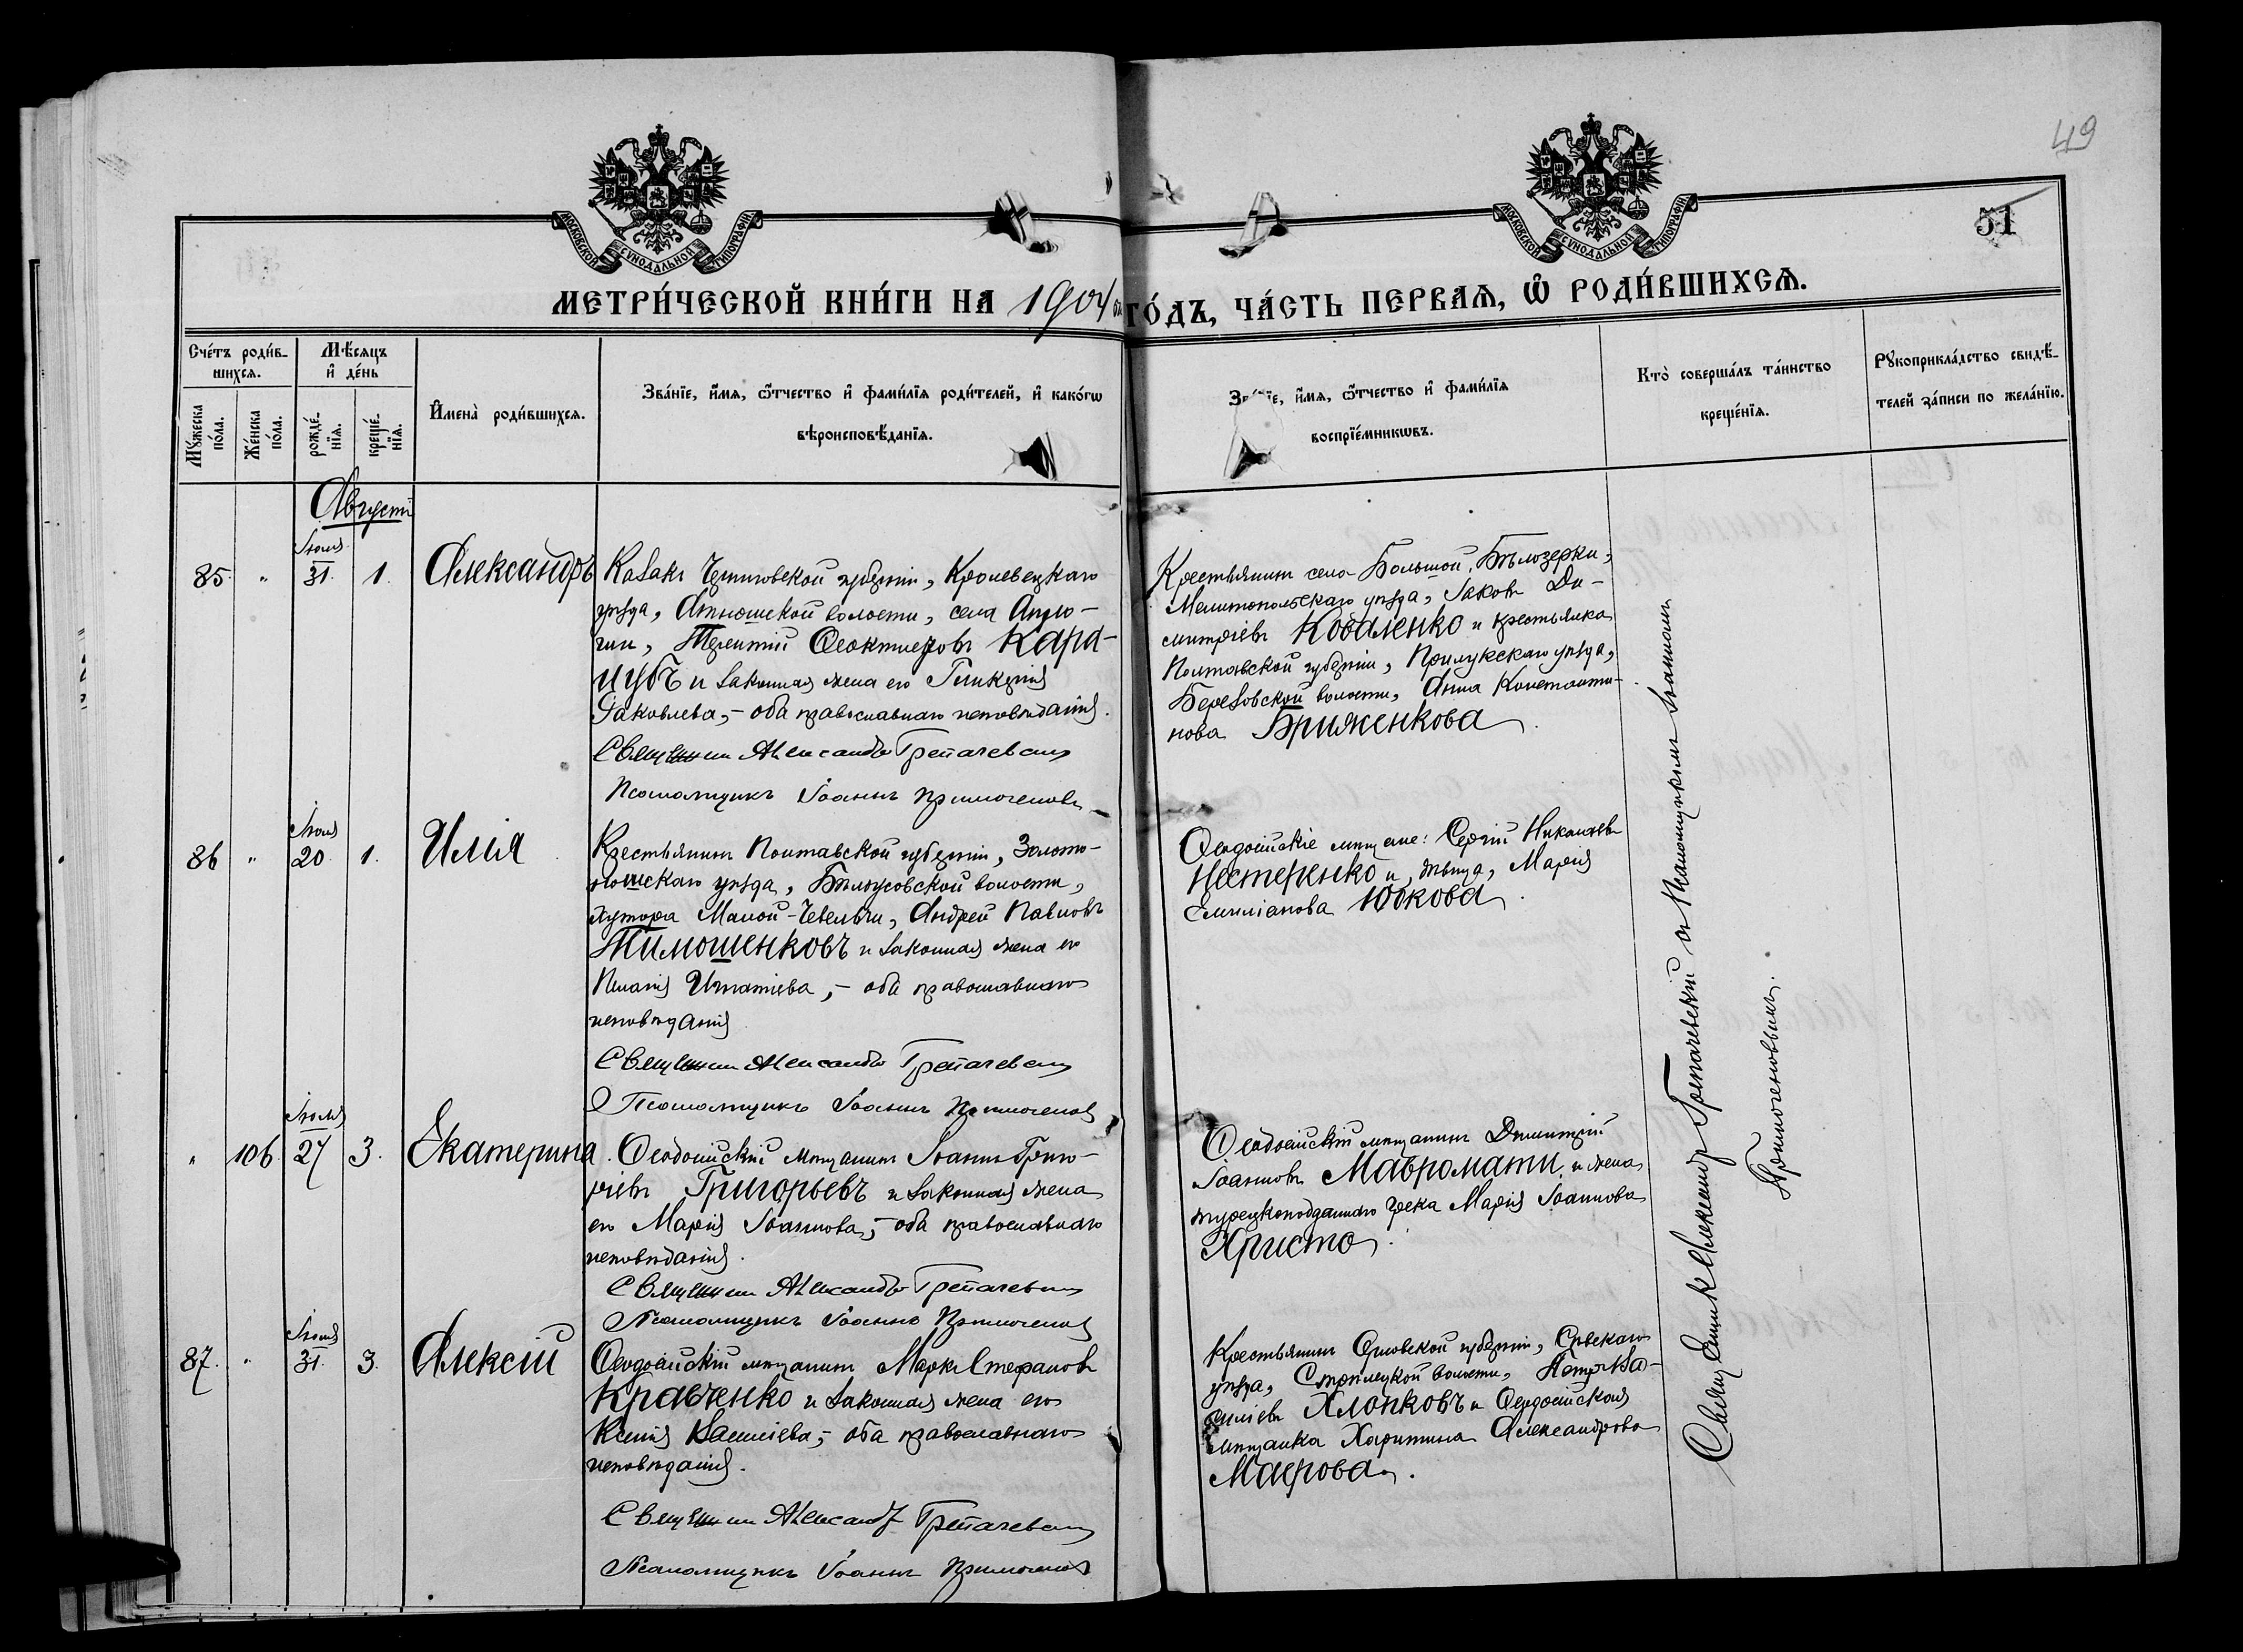 49
51
МОСКОВСКОЙ СУНОДАЛЬНОЙ ТИПОГРАФІИ
МОСКОВСКОЙ СУНОДАЛЬНОЙ ТИПОГРАФІИ
МЕТРИ́ЧЕСКОЙ КНИ́ГИ НА 1904 ГО́ДЪ, ЧА́СТЬ ПЕРВАѦ, Ѡ҆ РОДИ́ВШИХСѦ.
Сче́тъ роди́в-
шихсѧ.
Мꙋ́жеска по́ла.
Же́нска по́ла.
Мѣ́сѧцъ
и҆ де́нь
рожде́-
нїѧ.
креще́-
нїѧ.
И҆мена̀ роди́вшихсѧ.
Зва́нїе, и҆́мѧ, ѻ҆́тчество и҆ фами́лїѧ роди́телей, и҆ како́гѡ
вѣроисповѣ́данїѧ.
Зва́нїе, и҆́мѧ, ѻ҆́тчество и҆ фами́лїѧ
воспрїе́мникѡвъ.
Кто̀ соверша́лъ та́инство
креще́нїѧ.
Рꙋкоприкла́дство свидѣ́-
телей за́писи по жела́нїю.
Августъ
85. " Іюля 31. 1. Александръ
Казакъ Черниговской губерніи, Кролевецкаго
уѣзда, Атюшской волости, села
Терентій Феоктистовъ Кара-
цубъ и законная жена его Гликерія
Яковлева, - оба православнаго исповѣданія.
Священник Александръ Трепачевскій
Псаломщикъ Іоаннъ Примогеновъ
Крестьянинъ села Большой Бѣлозерки,
Мелитопольскаго уѣзда, Іаковъ Ди-
митріевъ Коваленко и крестьянка
Полтавской губерніи, Прилукскаго уѣзда,
Березовской волости, Анна Константи-
нова Бриженкова.
86 " Іюля 20. 1. Илія
Крестьянинъ Полтавской губерніи, Золото-
ношскаго уѣзда, Бѣлоусовской волости,
хутора Малой-Чевельчи, Андрей Павловъ
Тимошенковъ и законная жена его
Пелагія Игнатіева, - оба православнаго
исповѣданія
Священник Александръ Трепачевскій
Псаломщикъ Іоаннъ Примогеновъ
Ѳеодосійскіе мѣщане: Сергій Николаевъ
Нестеренко и, дѣвица, Марія
Емиліанова Юбкова.
" 106. Іюля 27 3. Екатерина.
Ѳеодосійскій мѣщанинъ Іоаннъ Григо-
ріевъ Григорьевъ и законная жена
его Марія Іоаннова, - оба православнаго
исповѣданія.
Священник Александръ Трепачевскій
Псаломщикъ Іоаннъ Примогеновъ
Ѳеодосійскій мѣщанинъ Димитрій
Іоанновъ Мавромати и жена
турецкоподданнаго грека Марія Іоаннова
Христо.
87. " Іюля 31. 3. Алексій
Ѳеодосійскій мѣщанинъ Маркъ Стефановъ
Кравченко и законная жена его
Ксенія Василіева, - оба православнаго
исповѣданія.
Священник Александръ Трепачевскій
Псаломщикъ Іоаннъ Примогеновъ
Крестьянинъ Орловской губерніи, Сѣвскаго
уѣзда, волости, Петръ Ва-
силіевъ Хлопковъ и Ѳеодосійская
мѣщанка Харитина Александрова
Маерова.
Священникъ Александръ Трепачевскій съ псаломщикомъ Іоанномъ
Примогеновымъ.